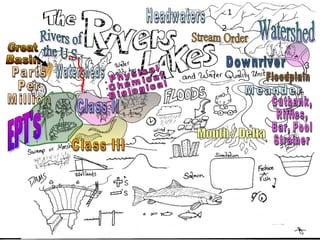 Headwaters
The Rivers Lakes
and Water Quality Unit
Stream Order
1
2
Watershed
Rivers of the U.S.
Great Basin
Watersheds
Water
Physical
Chemical
Biological
Parts
Per
Million
Downriver
Floodplain
Meander
Cutbank,
Riffles,
Bar, Pool
Strainer
Class V
FLOODS
EPT's
Mouth / Delta
Class III
Swamp or Marsh
Wetlands
DAMS
+'s
-'s
Salmon
Fish